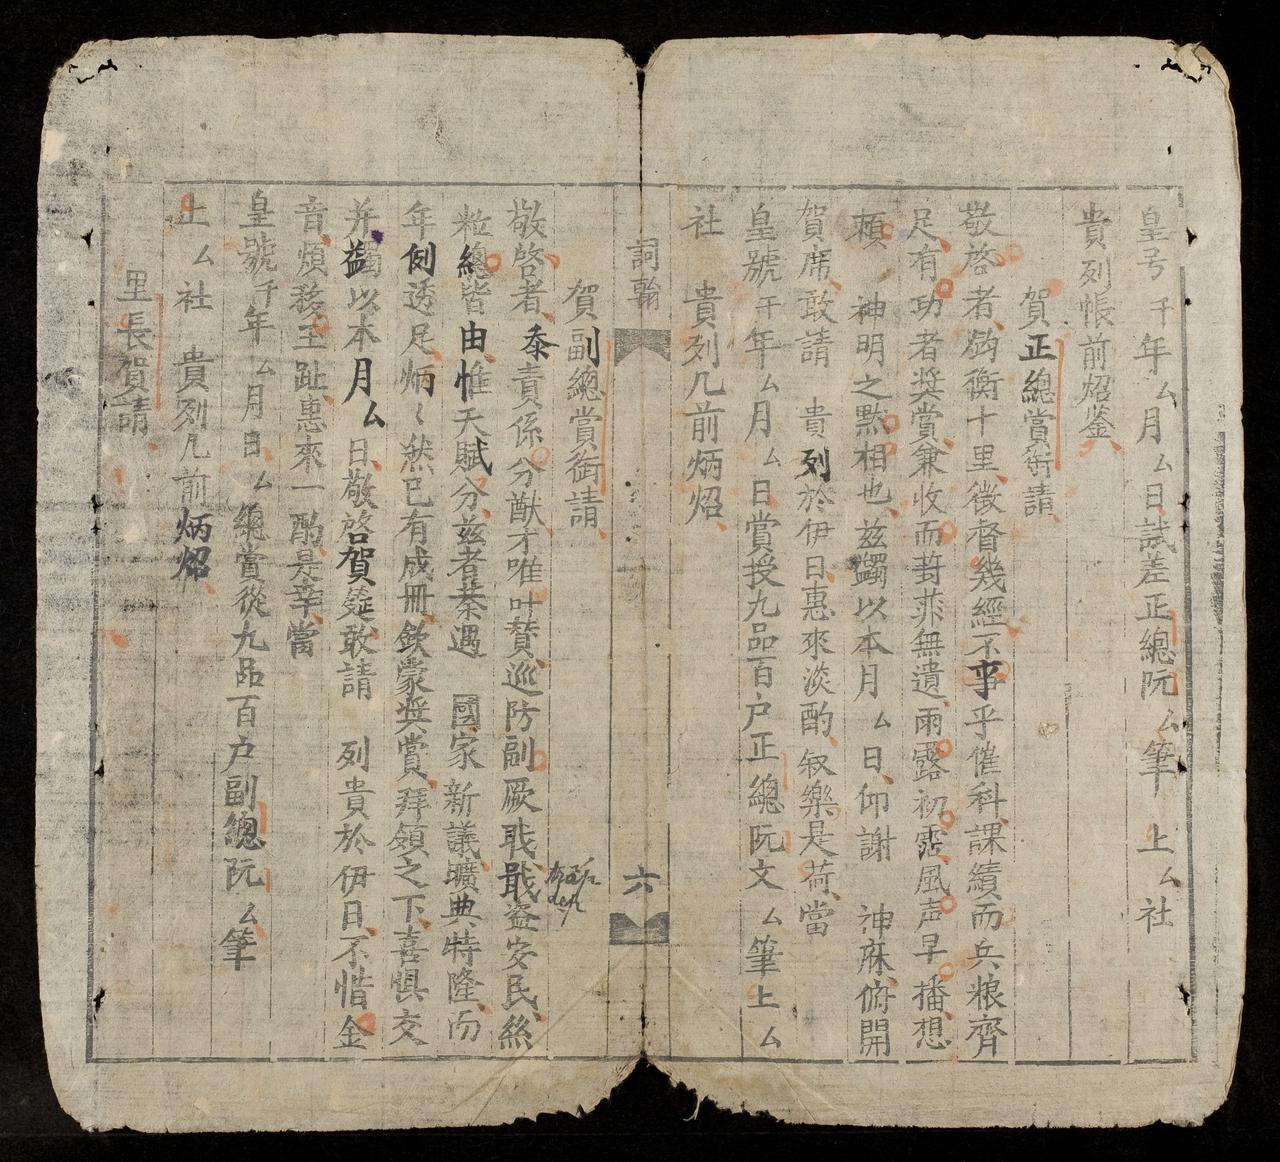 皇号千年厶月厶日試差正總阮厶筆 上厶社
貴列帳前炤鉴
賀正總賞銜請
敬啓者鈞衡十里徵督幾經不事乎催科課績而兵粮齊
足有功者奖賞兼收而葑菲無遺雨露初霑風声早播想
頼 神明之黙相也兹蠲以本月厶日仰謝 神庥俯開
賀席敢請 貴列於伊日惠來淡酌叙樂是荷當
皇號千年厶月厶日賞授九品百户正總阮文厶筆上厶
社 貴列几前炳炤
詞翰
六
賀副總賞銜請
敬啓者忝責係分猷才唯叶賛巡防副厥戢戢盗安民絲
粒總皆由惟天賦分兹者葇遇 國家新議曠典特隆而
年例透足炳〻然已有成冊欽蒙奖賞拜領之下喜惧交
并蠲以本月厶日敬啓賀筵敢請 列貴於伊日不惜金
音煩移玉趾惠來一酌是幸當
皇號千年厶月日厶總賞從九品百户副總阮厶筆
上厶社 貴列几前炳炤
里長賀請